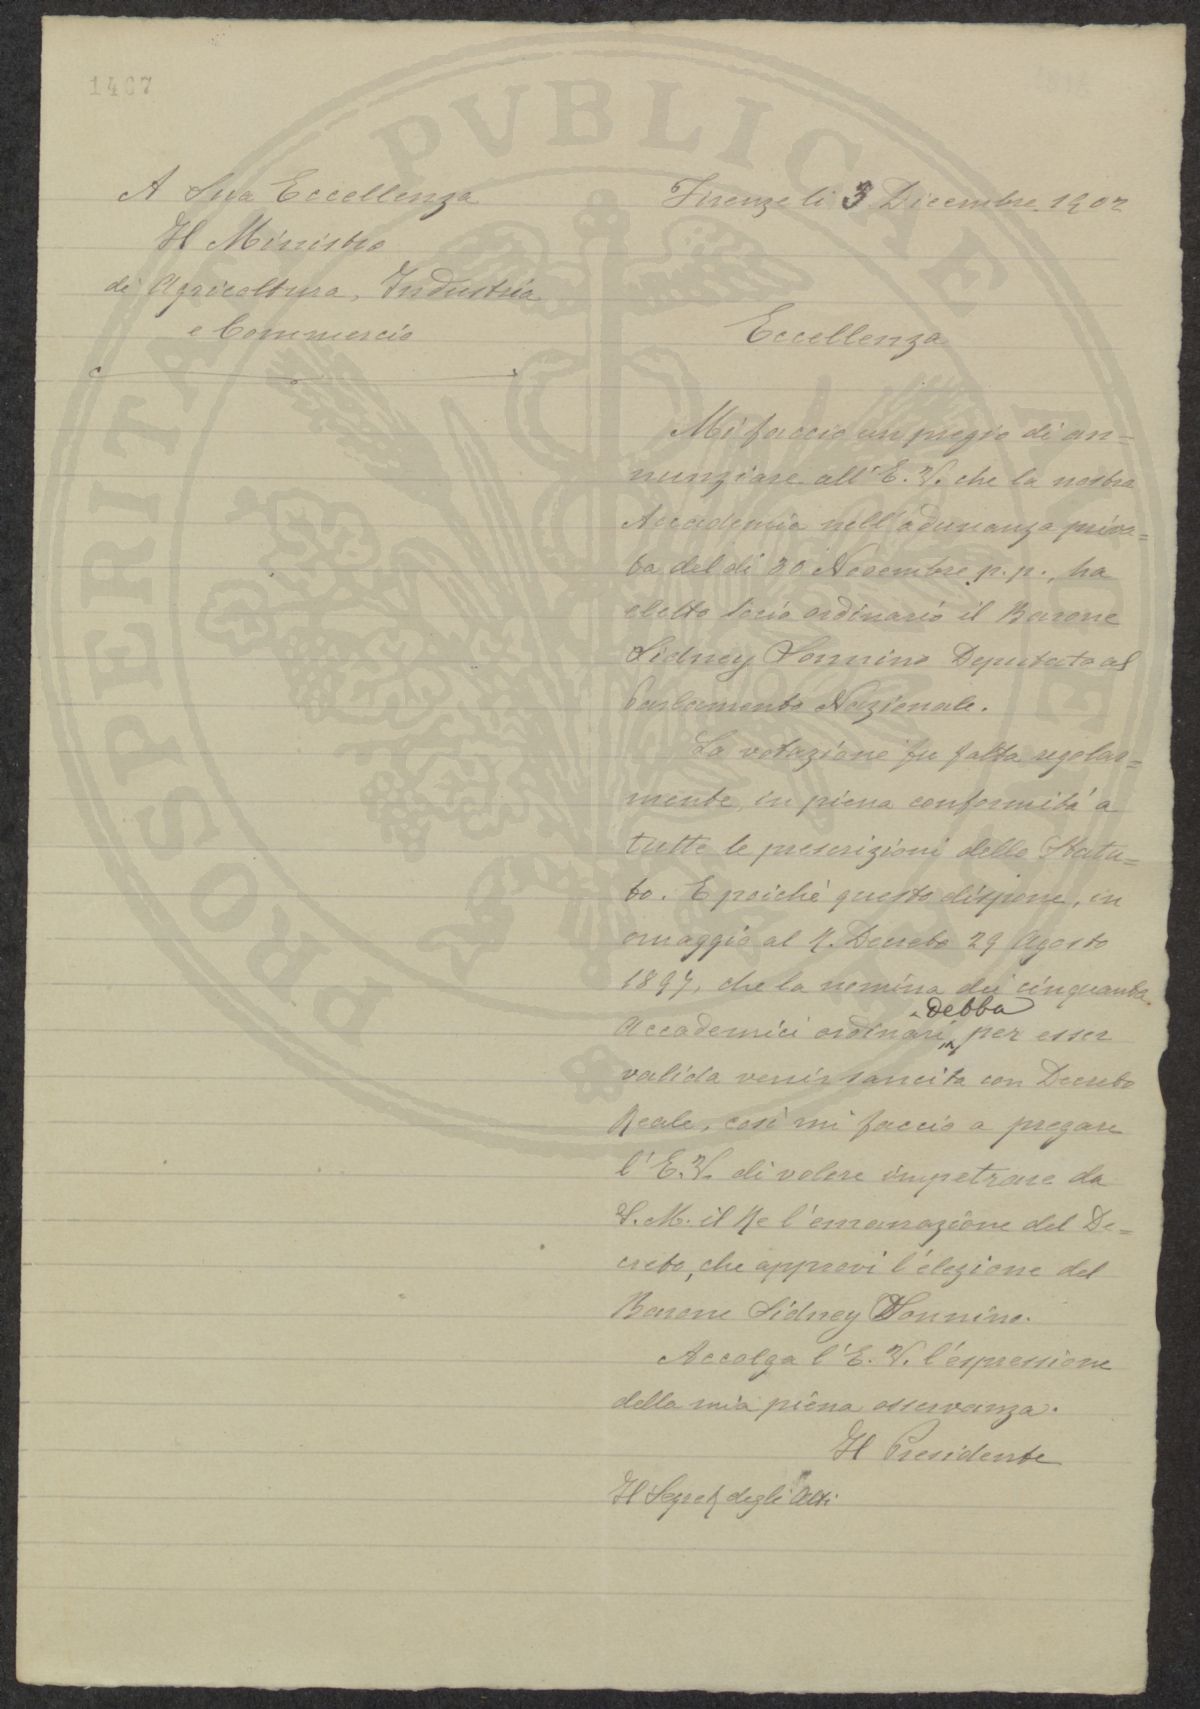 1467
A Sua Eccellenza
Il Ministro
di Agricoltura, Industria
e Commercio
Firenze li 3 Dicembre 1902
Eccellenza
Mi faccio un pregio di an=
nunziare all'E. V. che la nostra
Accademia nell'adunanza priva=
ta del di 30 Novembre p. p., ha
eletto Socio ordinario il Barone
Sidney Sonnino Deputato al
Parlamento Nazionale.
La votazione fu fatta regolar=
mente, in piena conformità a
tutte le prescrizioni dello Statu=
to. E poichè questo dispone, in
omaggio al R. Decreto 29 Agosto
1897, che la nomina dei cinquanta
Accademici ordinari, debba per esser
valida venir sancita con Decreto
Reale, così mi faccio a pregare
l'E. V. di volere impetrare da
S. M. il Re l'emanazione del De=
creto, che approvi l'elezione del
Barone Sidney Sonnino.
Accolga l'E. V. l'espressione
della mia piena osservanza.
Il Presidente
Il Segret degli Atti
PROSPERITATI PVBLICAE AVGENDAE